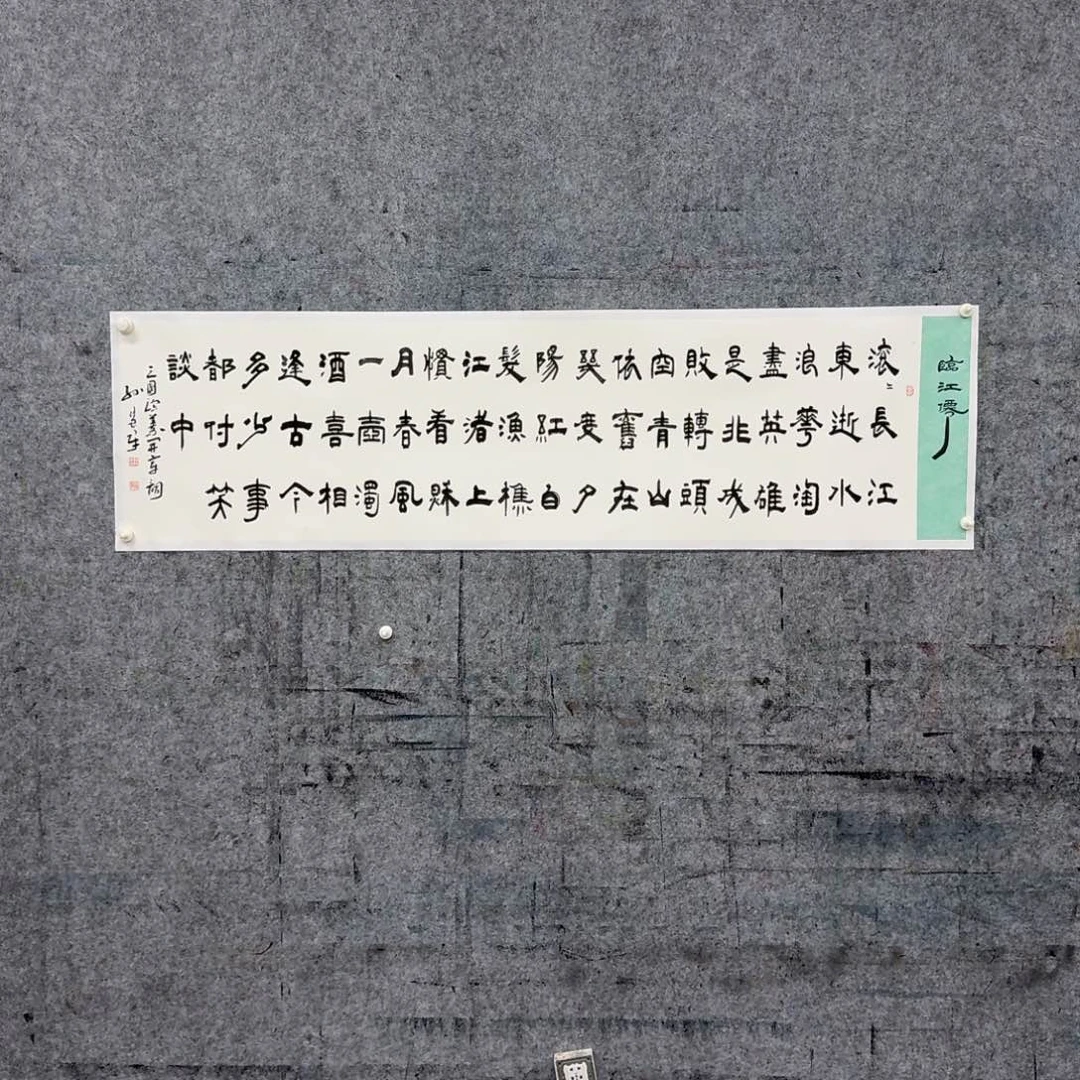 臨江僊
滚〻長江
東逝水
浪華淘
盡英雄
是非成
敗轉頭
空青山
依舊在
幾度夕
陽紅白
髮漁樵
江渚上
慣看秋
月春風
一壺濁
酒喜相
逢古今
多少事
都付笑
談中
三國演義開章詞